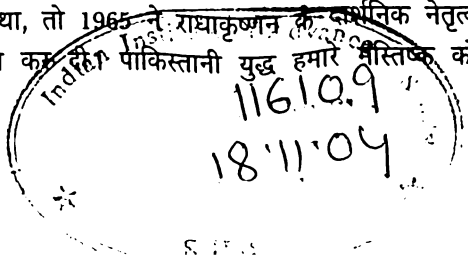 था, तो 1965 ने राधाकृष्णन के दार्शनिक नेतृत्
कर दी। पाकिस्तानी युद्ध हमारे मस्तिष्क को
Indian Inst
116109
18.11.04